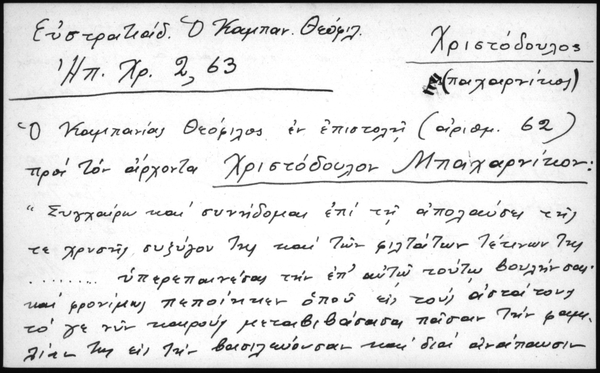 Εὐστρατιάδ. Ὁ Καμπαν. Θεόφιλ.
Ἠπ. Χρ. 2, 63
Χριστόδουλος
(παχαρνίκος)
Ὁ Καμπανίας Θεόφιλος ἐν ἐπιστολῇ (ἀριθμ. 62)
πρὸς τὸν ἄρχοντα Χριστόδουλον Μπαχαρνίκον:
"Συγχαίρω καὶ συνήδομαι ἐπὶ τῇ ἀπολαύσει τῆς
τε χρυσῆς συζύγου της καὶ τῶν φιλτάτων τέκνων της
........ ὑπερεπαινέσας τὴν ἐπ' αὐτῷ τούτῳ βουλήν σας
καὶ φρονίμως πεποίηκεν ὁποῦ εἰς τοὺς ἀστάτους
τό γε νῦν καιροὺς μεταβιβάσασα πᾶσαν τὴν φαμε-
λίαν της εἰς τὴν βασιλεύουσαν καὶ διὰ ἀνάπαυσιν